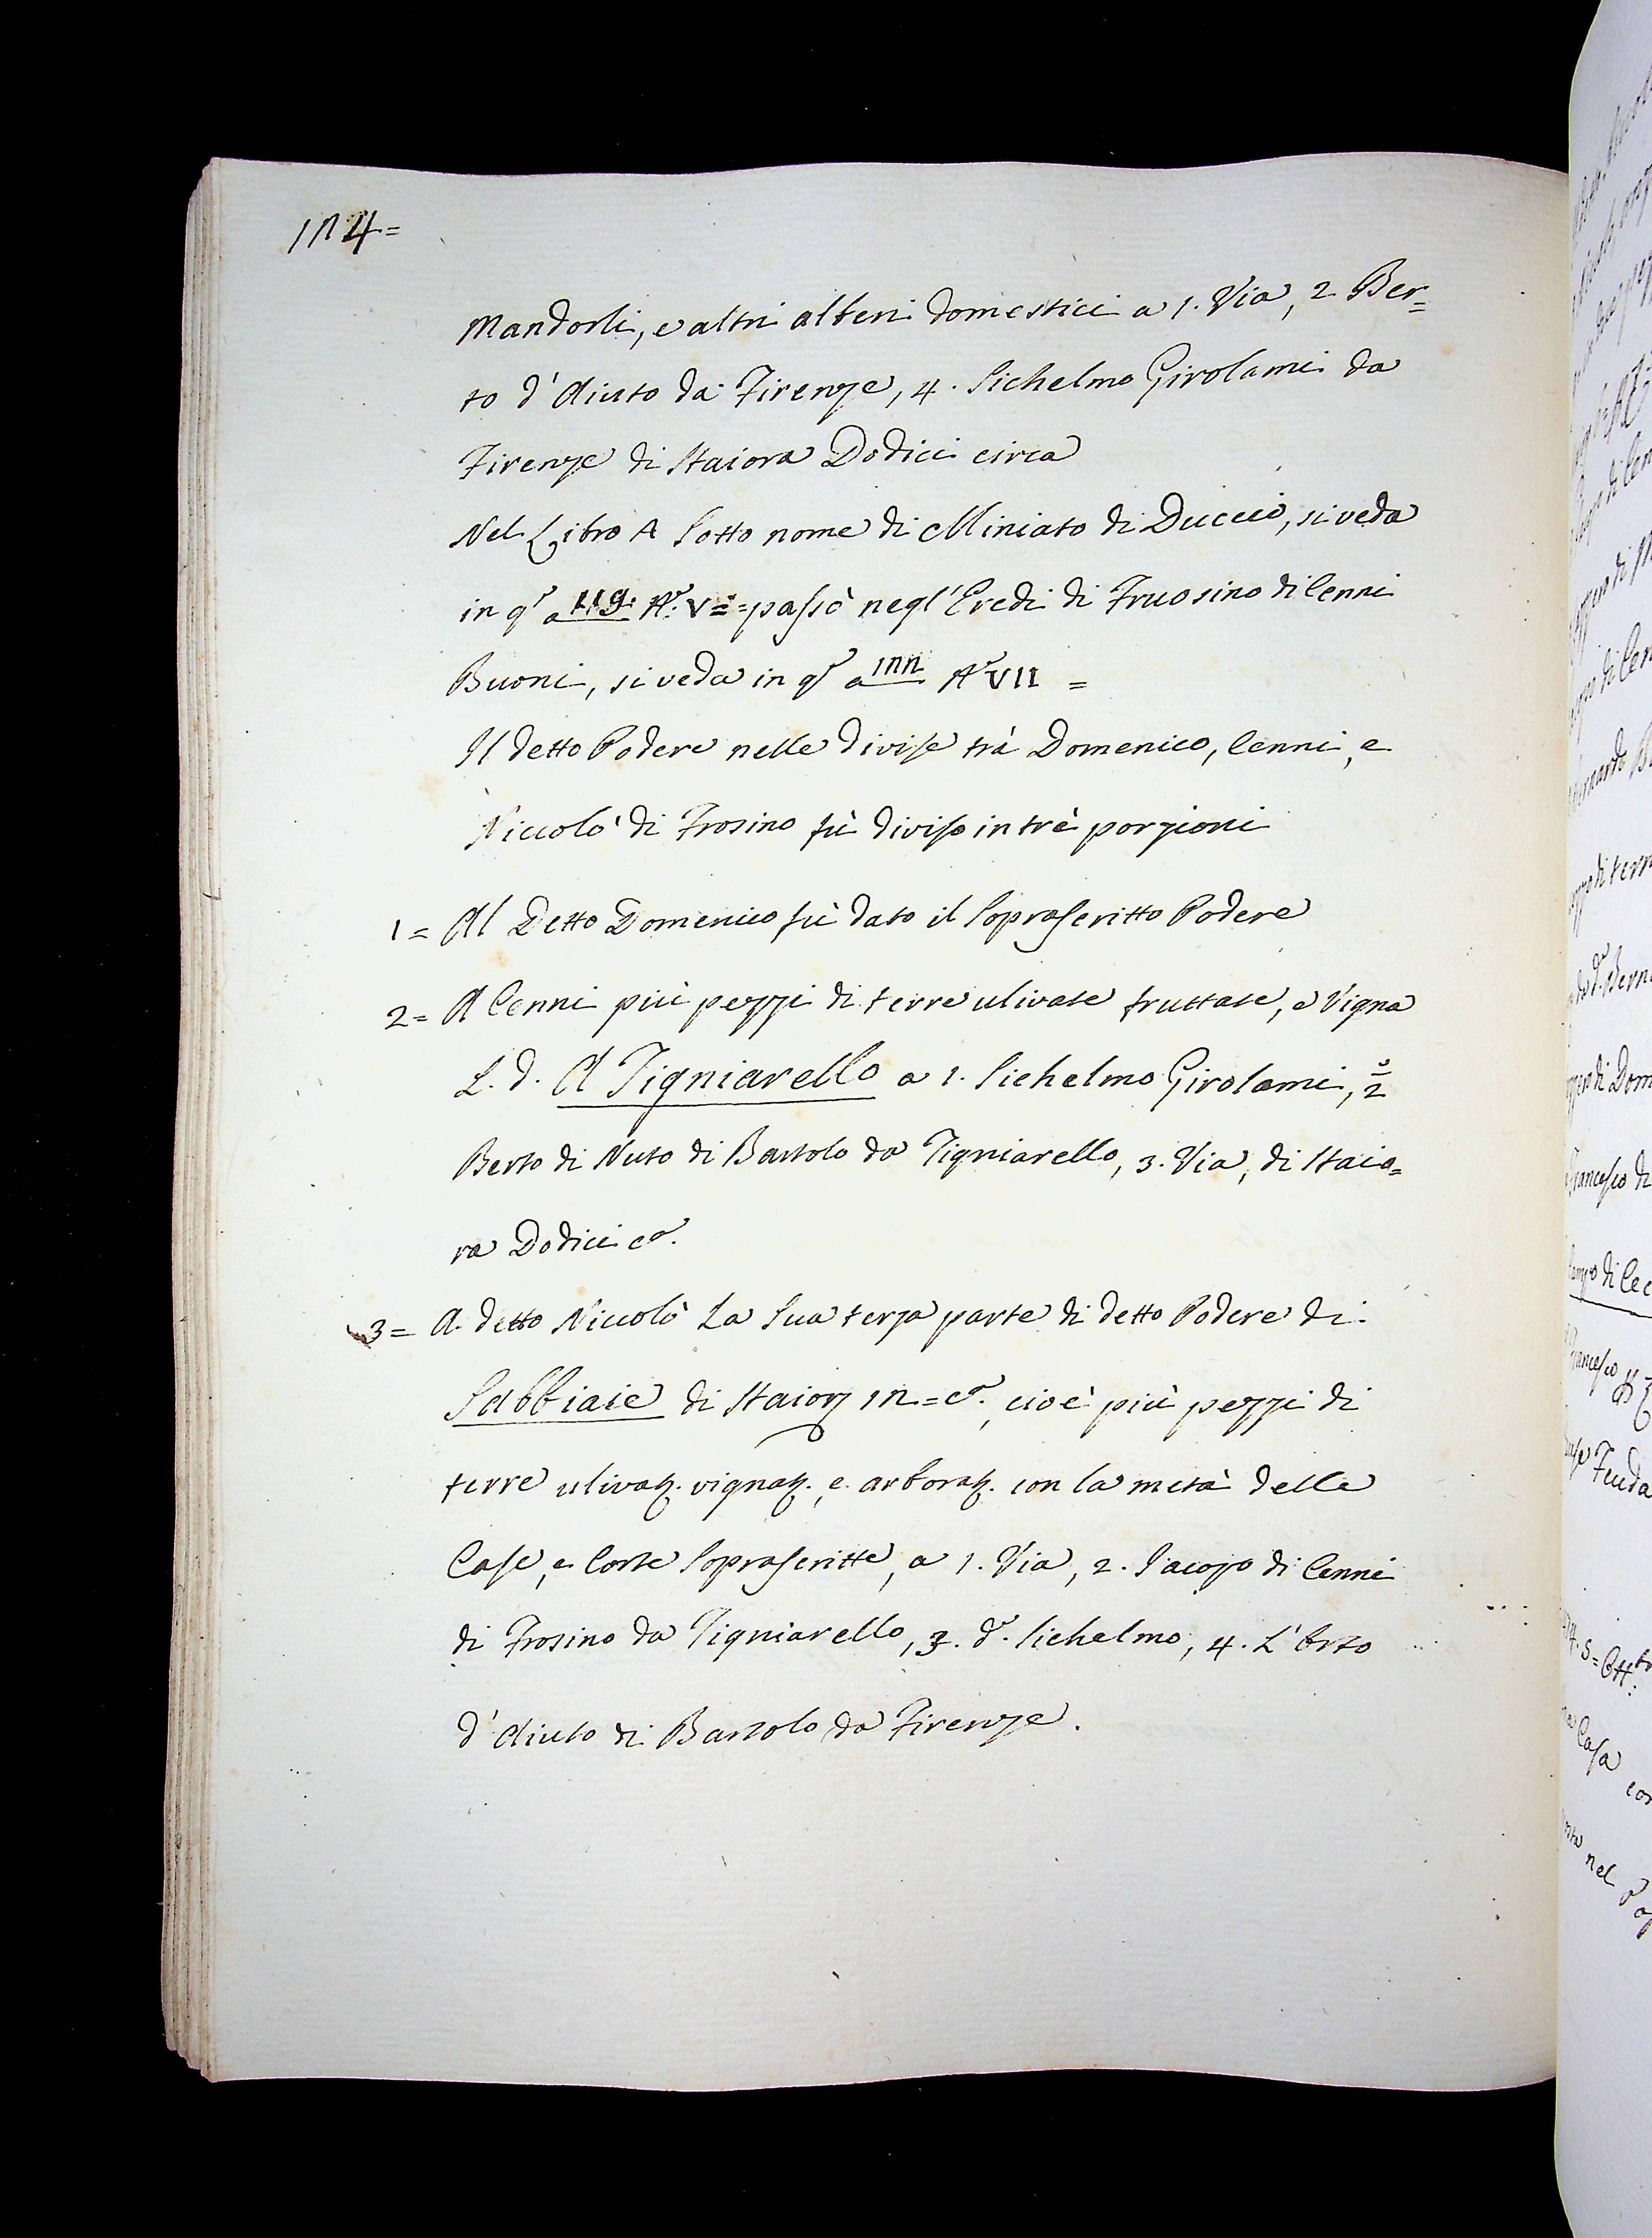 124=
Mandorli, e altri alberi domestici a 1. Via, 2 Ber=
to d' Aiuto da Firenze, 4. Sichelmo Girolami da
Firenze di Staiora Dodici circa
Nel Libro A Sotto nome di Miniato di Duccio, si veda
in q.º a 119. A.º V = passò negl' Eredi di Fruosino di Cenni
Buoni, si veda in q.º a A.º VII =
Il detto Podere nelle divise trà Domenico, Cenni, e
Niccolò di Frosino fù diviso in trè porzioni
1 = Al Detto Domenico fù dato il Soprascritto Podere
2 = A Cenni più pezzi di terre ulivate fruttate, e Vigna
L. d. A Tigniarello a 1. Sichelmo Girolami, 2
Berto di Nuto di Bartolo da Tigniarello, 3. Via, di Staio=
ra Dodici c.ª
3 = A. detto Niccolò La Sua terza parte di detto Podere di
Sabbiaie di Staior 12 = c.ª, cioè più pezzi di
terre ulivat. vignat. e arborat. con la metà delle
Case, e Corte Soprascritte, a 1. Via, 2. Jacopo di Cenni
di Frosino da Tigniarello, 3. d.º Sichelmo, 4. L' Orto
d' Aiuto di Bartolo da Firenze.